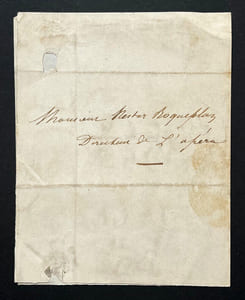 Monsieur Nestor Roqueplan
Directeur de L'opéra